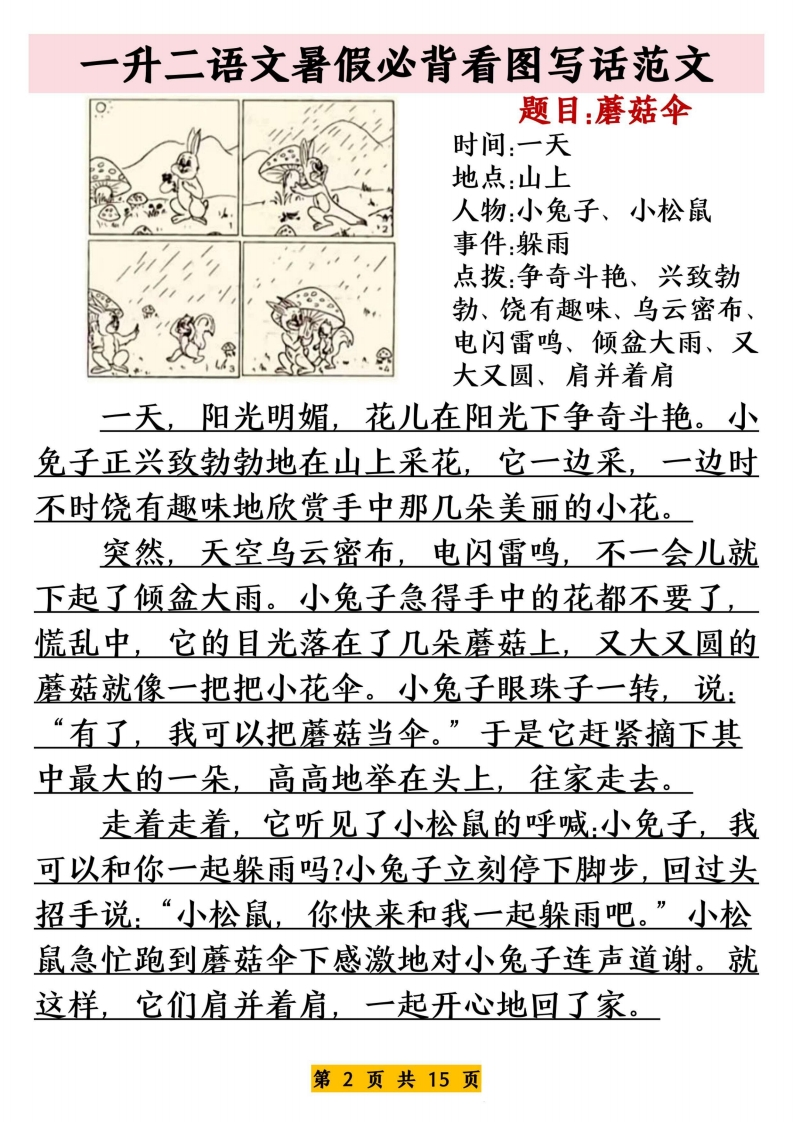 一升二语文暑假必背看图写话范文
题目:蘑菇伞
时间:一天
地点:山上
人物:小兔子、小松鼠
事件:躲雨
点拨:争奇斗艳、兴致勃
勃、饶有趣味、乌云密布、
电闪雷鸣、倾盆大雨、又
大又圆、肩并着肩
1
2
3
4
一天，阳光明媚，花儿在阳光下争奇斗艳。小
兔子正兴致勃勃地在山上采花，它一边采，一边时
不时饶有趣味地欣赏手中那几朵美丽的小花。
突然，天空乌云密布，电闪雷鸣，不一会儿就
下起了倾盆大雨。小兔子急得手中的花都不要了，
慌乱中，它的目光落在了几朵蘑菇上，又大又圆的
蘑菇就像一把把小花伞。小兔子眼珠子一转，说：
“有了，我可以把蘑菇当伞。”于是它赶紧摘下其
中最大的一朵，高高地举在头上，往家走去。
走着走着，它听见了小松鼠的呼喊:小兔子，我
可以和你一起躲雨吗?小兔子立刻停下脚步,回过头
招手说：“小松鼠，你快来和我一起躲雨吧。”小松
鼠急忙跑到蘑菇伞下感激地对小兔子连声道谢。就
这样，它们肩并着肩，一起开心地回了家。
第 2 页 共 15 页